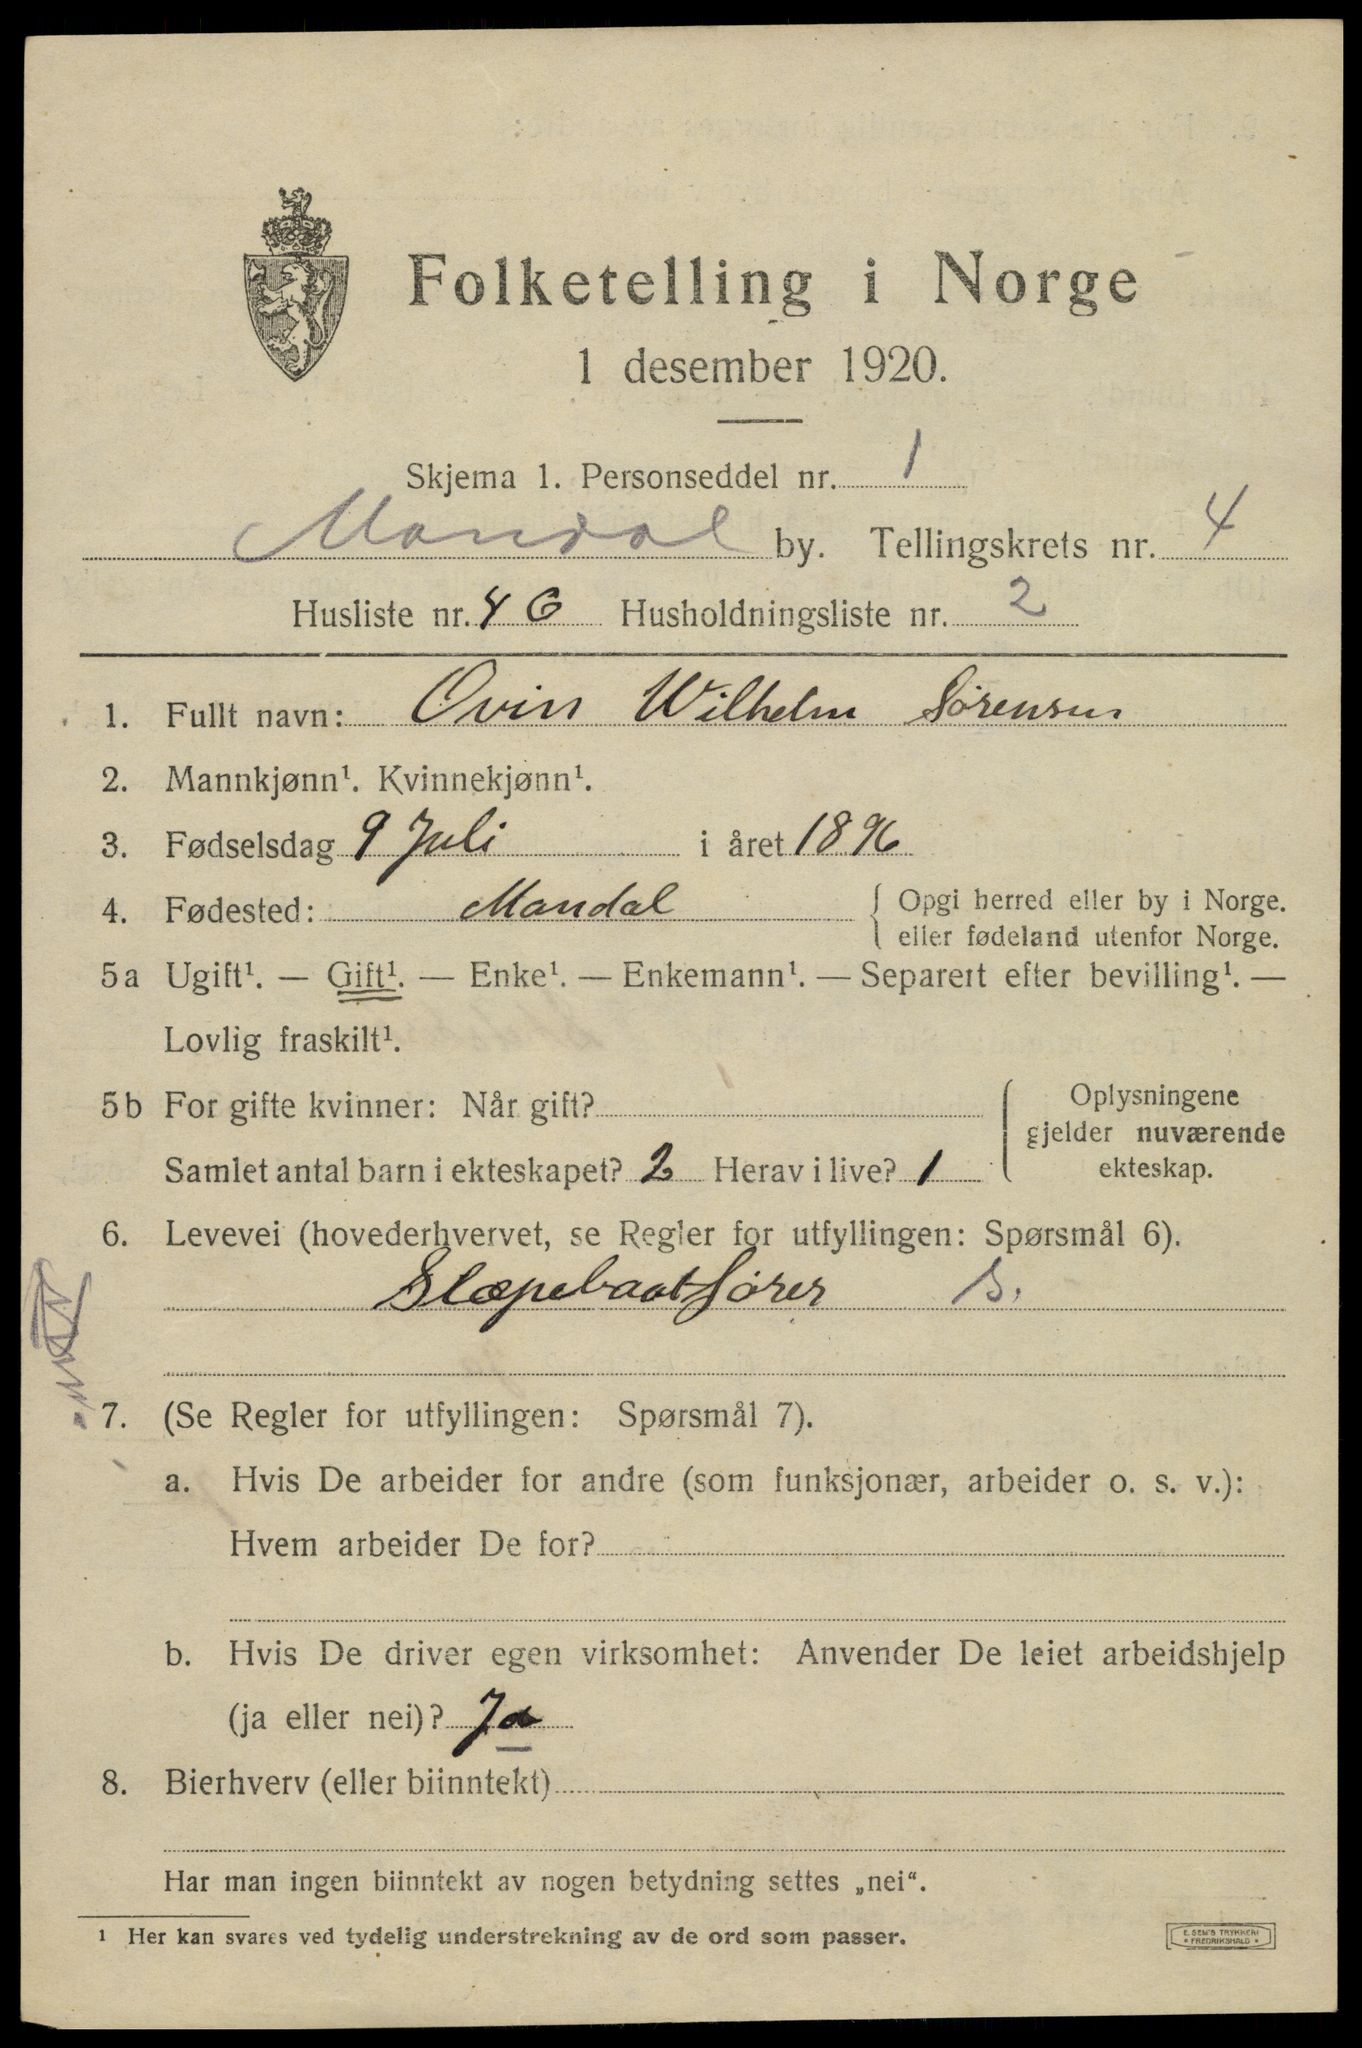 Folketelling i Norge
1 desember 1920.
Skjema 1. Personseddel nr. 1
Mandal by. Tellingskrets nr. 4
Husliste nr. 46 Husholdningsliste nr. 2
1. Fullt navn: Ovin Wilhelm Sørensen
2. Mannkjønn¹. Kvinnekjønn¹.
3. Fødselsdag 9 Juli i året 1896
4. Fødested: Mandal { Opgi herred eller by i Norge.
eller fødeland utenfor Norge.
5a Ugift¹. — Gift¹. — Enke¹. — Enkemann¹. — Separert efter bevilling¹. —
Lovlig fraskilt¹.
5b For gifte kvinner: Når gift?
Samlet antal barn i ekteskapet? 2 Herav i live? 1
{ Oplysningene
gjelder nuværende
ekteskap.
6. Levevei (hovederhvervet, se Regler for utfyllingen: Spørsmål 6).
Slæpebaatfører s.
7. (Se Regler for utfyllingen: Spørsmål 7).
a. Hvis De arbeider for andre (som funksjonær, arbeider o. s. v.):
Hvem arbeider De for?
b. Hvis De driver egen virksomhet: Anvender De leiet arbeidshjelp
(ja eller nei)? Ja
8. Bierhverv (eller biinntekt)
Har man ingen biinntekt av nogen betydning settes „nei“.
¹ Her kan svares ved tydelig understrekning av de ord som passer.
E. SEM'S TRYKKERI
* FREDRIKSHALD *